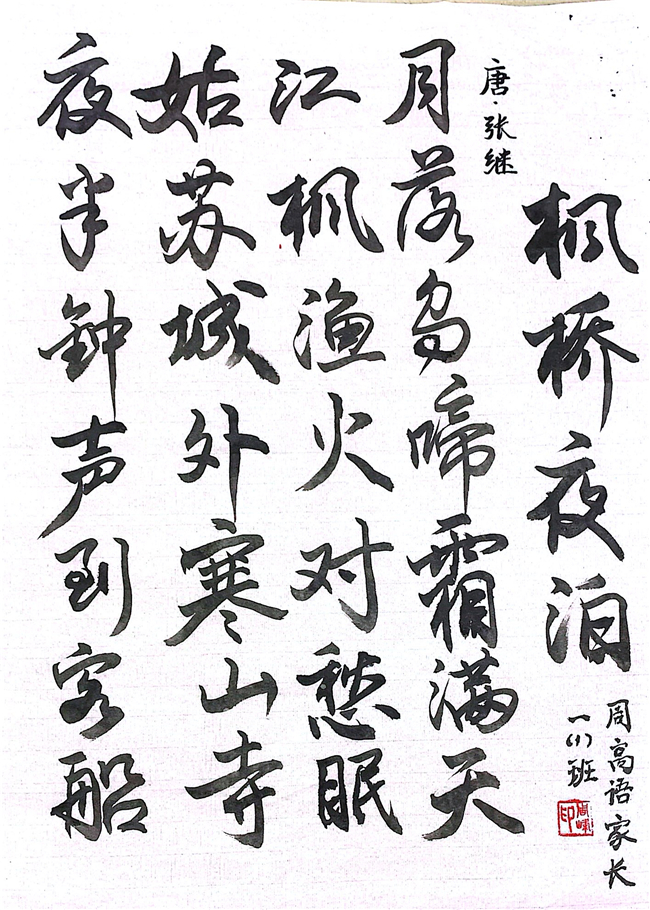 枫桥夜泊
唐·张继
月落乌啼霜满天
江枫渔火对愁眠
姑苏城外寒山寺
夜半钟声到客船
周高语家长
一(1)班